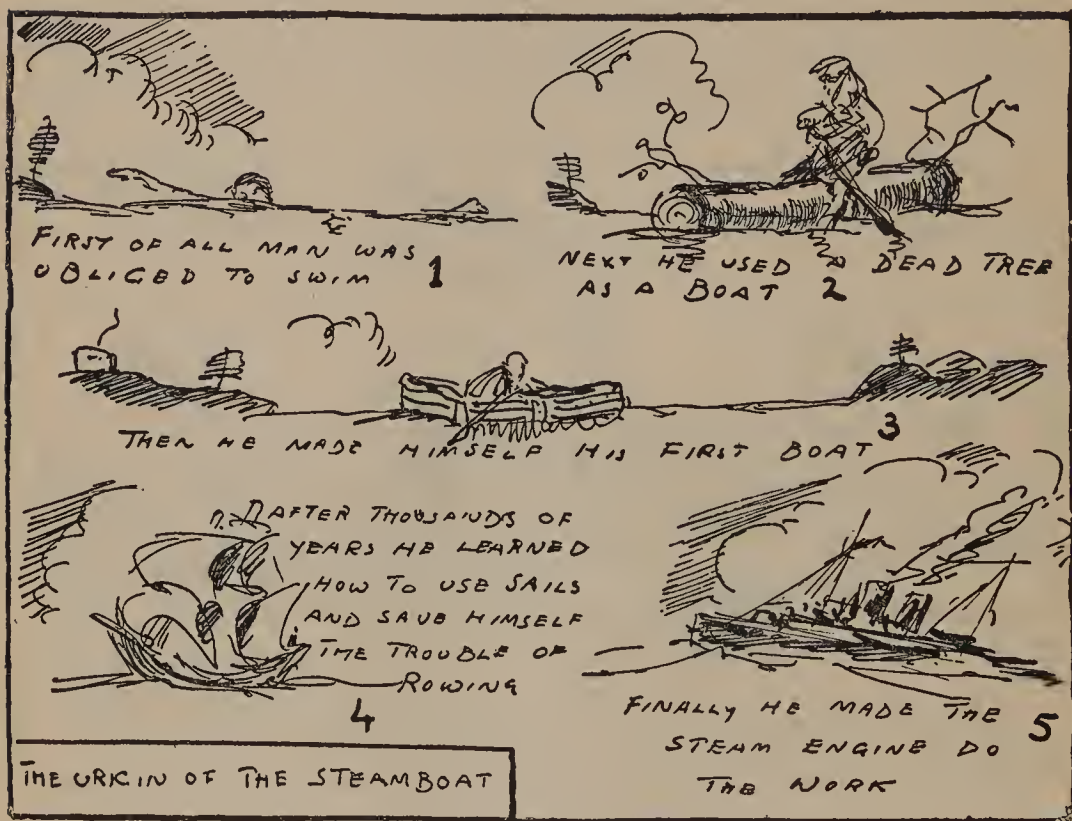 FIRST OF ALL MAN WAS
OBLIGED TO SWIM 1
NEXT HE USED A DEAD TREE
AS A BOAT 2
THEN HE MADE HIMSELF HIS FIRST BOAT 3
AFTER THOUSANDS OF
YEARS HE LEARNED
HOW TO USE SAILS
AND SAVE HIMSELF
THE TROUBLE OF
ROWING
4
FINALLY HE MADE THE 5
STEAM ENGINE DO
THE WORK
THE ORIGIN OF THE STEAMBOAT